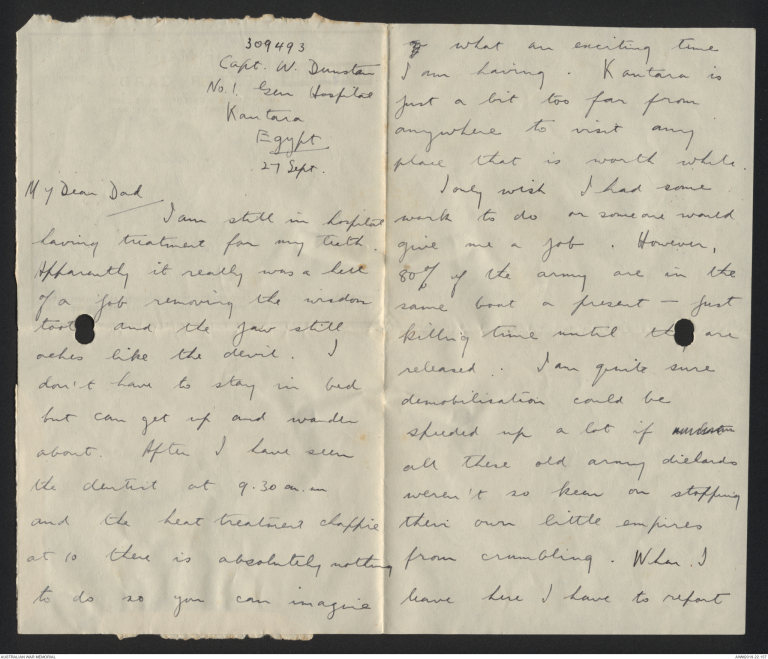 309493
Capt. W. Dunstan
No. 1. Gen Hospital
Kantara
Egypt
27 Sept.
My Dear Dad
I am still in hospital
having treatment for my teeth.
Apparently it really was a hell
of a job removing the wisdom
tooth and the jaw still
aches like the devil. I
don't have to stay in bed
but can get up and wander
about. After I have seen
the dentist at 9.30 a.m
and the heat treatment chappie
at 10 there is absolutely nothing
to do so you can imagine
what an exciting time
I am having. Kantara is
just a bit too far from
anywhere to visit any
place that is worth while.
I only wish I had some
work to do or someone would
give me a job. However,
80% of the army are in the
same boat a present — just
killing time until they are
released. I am quite sure
demobilisation could be
speeded up a lot if
all these old army diehards
weren't so keen on stopping
their own little empires
from crumbling. When I
leave here I have to report
AUSTRALIAN WAR MEMORIAL